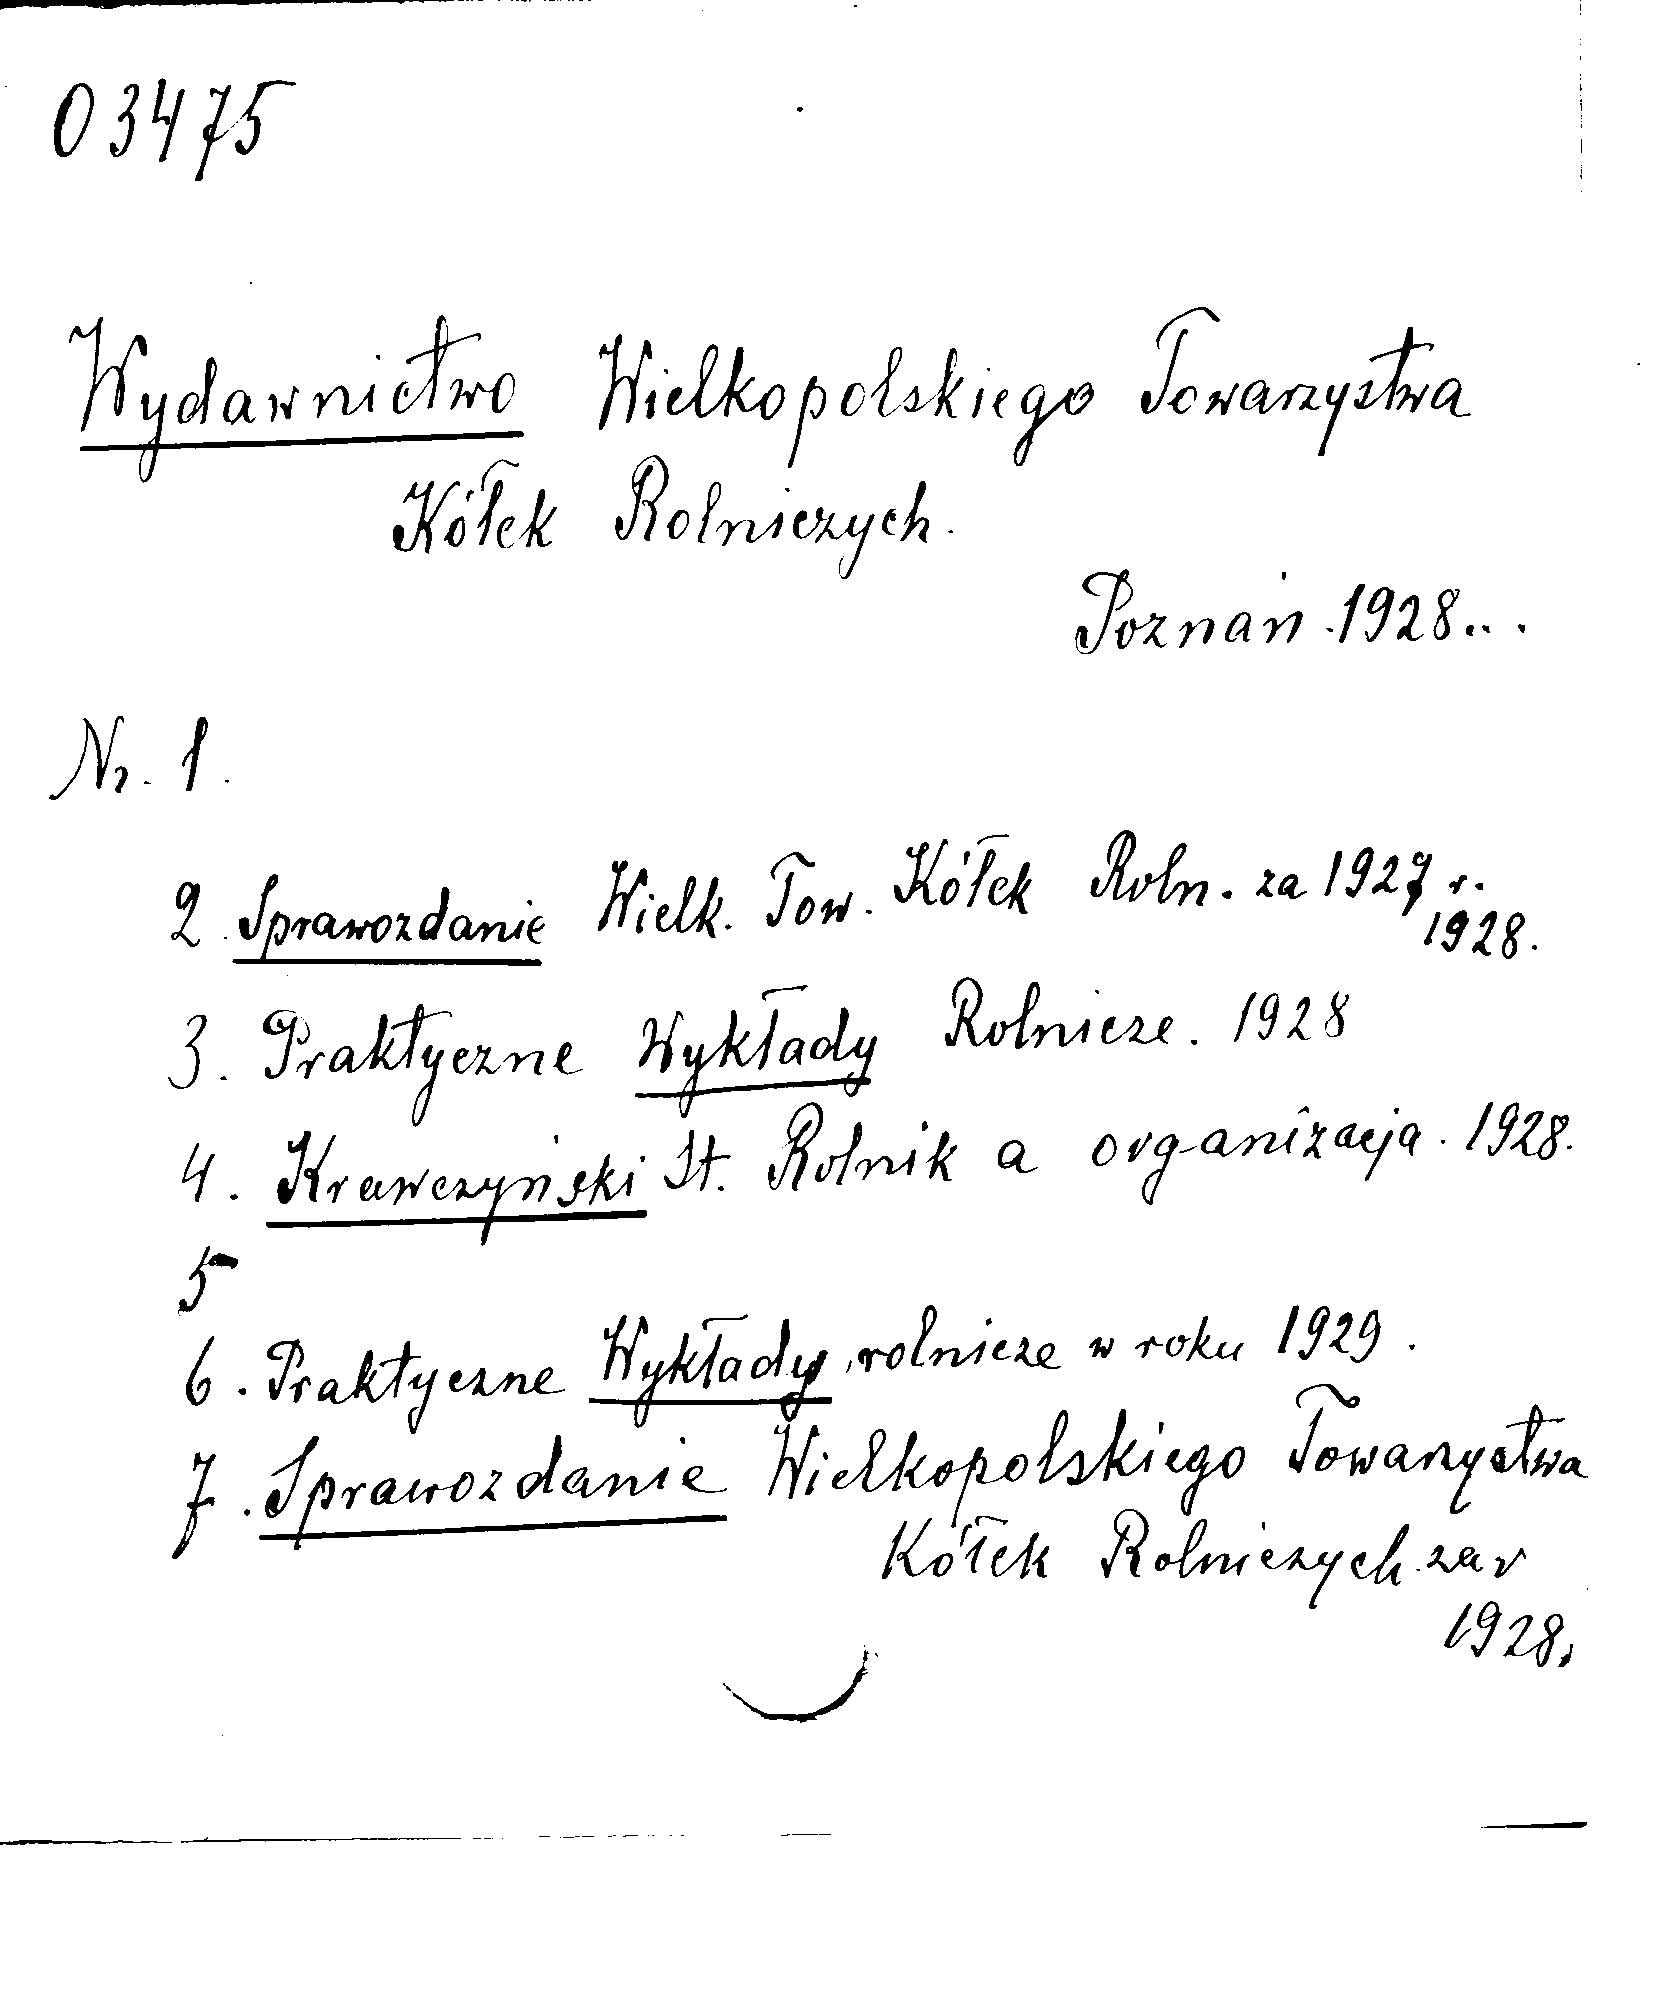 03475
Wydawnictwo Wielkopolskiego Towarzystwa
Kółek Rolniczych.
Poznań. 1928...
Nr. 1.
2. Sprawozdanie Wielk. Tow. Kółek Roln. za 1927 r.
1928.
3. Praktyczne Wykłady Rolnicze. 1928
4. Krawczyński St. Rolnik a organizacja. 1928.
5
6. Praktyczne Wykłady rolnicze w roku 1929.
7. Sprawozdanie Wielkopolskiego Towarzystwa
Kółek Rolniczych za r
1928.